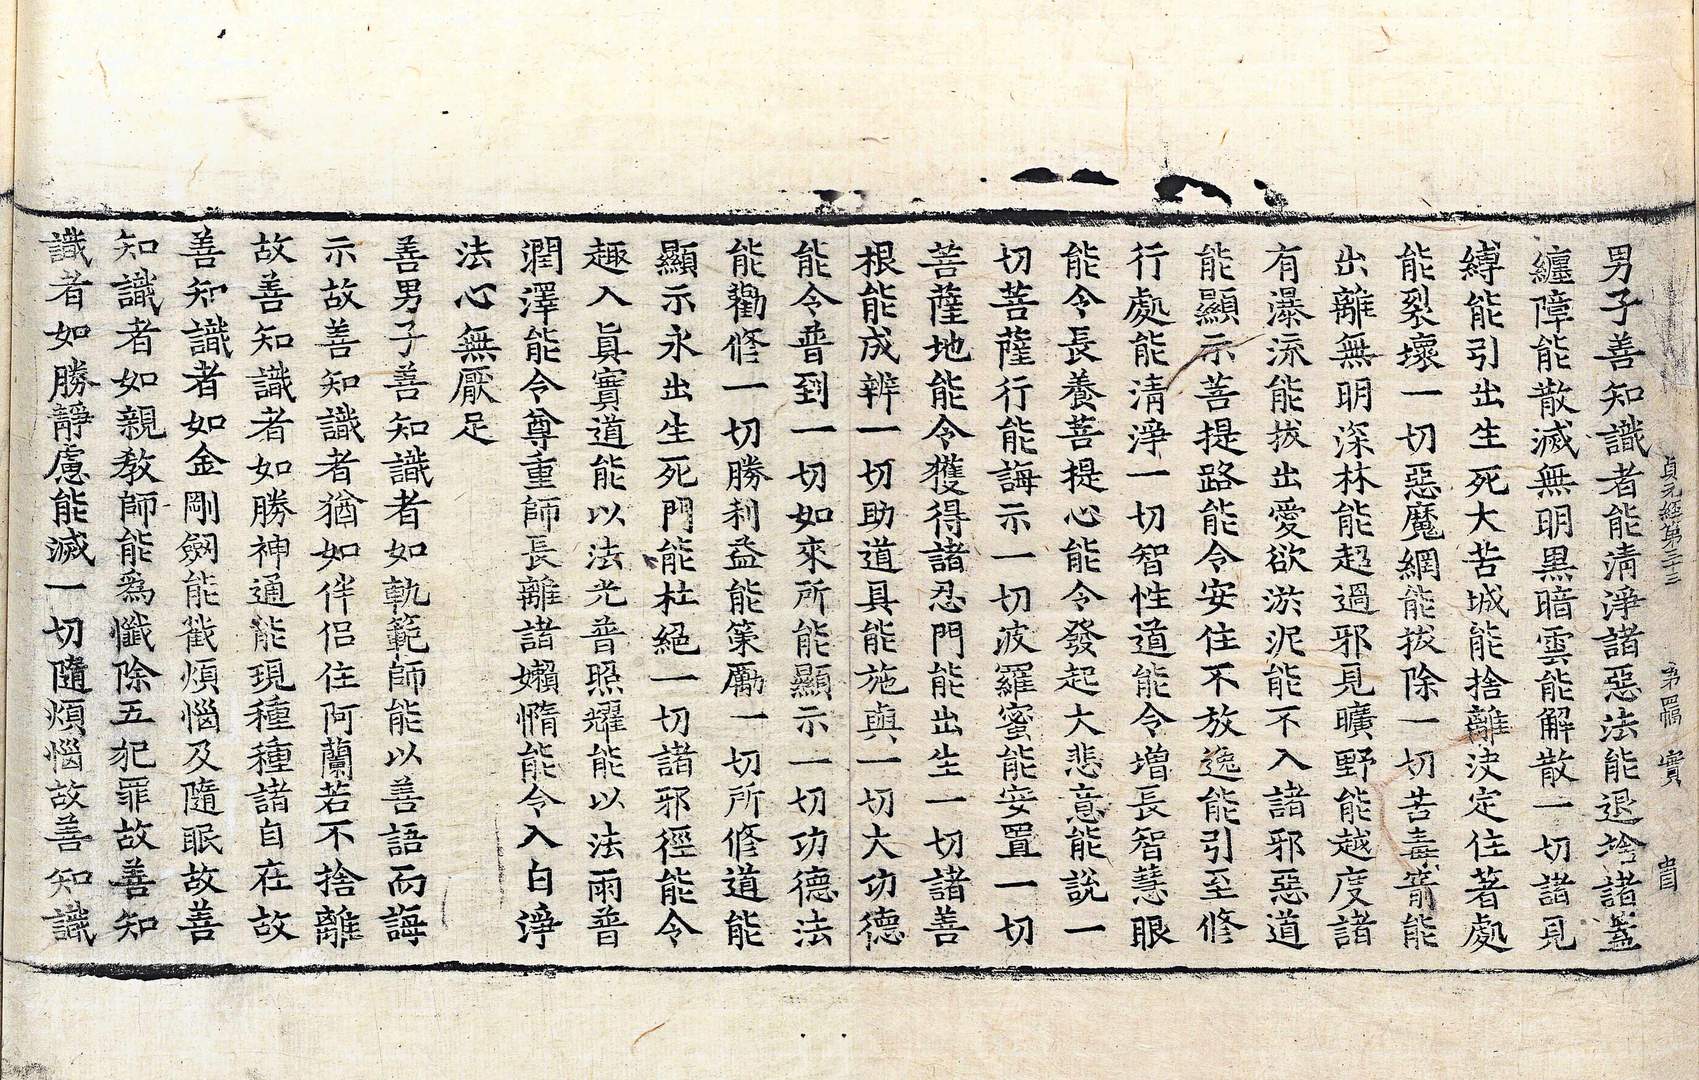 貞元經第三十三 第四幅 實 
男子善知識者能淸淨諸惡法能退捨諸蓋
纏障能散滅無明黑暗雲能解散一切諸見
縛能引出生死大苦城能捨離決定住著處
能裂壞一切惡魔網能拔除一切苦毒箭能
出離無明深林能超過邪見曠野能越度諸
有瀑流能拔出愛欲淤泥能不入諸邪惡道
能顯示菩提路能令安住不放逸能引至修
行處能淸淨一切智性道能令增長智慧眼
能令長養菩提心能令發起大悲意能說一
切菩薩行能誨示一切波羅蜜能安置一切
菩薩地能令獲得諸忍門能出生一切諸善
根能成辨一切助道具能施與一切大功德
能令普到一切如來所能顯示一切功德法
能勸修一切勝利益能策勵一切所修道能
顯示永出生死門能杜絕一切諸邪徑能令
趣入眞實道能以法光普照耀能以法雨普
潤澤能令尊重師長離諸嬾惰能令入白淨
法心無厭足
善男子善知識者如軌範師能以善語而誨
示故善知識者猶如伴侶住阿蘭若不捨離
故善知識者如勝神通能現種種諸自在故
善知識者如金剛劒能截煩惱及隨眠故善
知識者如親敎師能爲懺除五犯罪故善知
識者如勝靜慮能滅一切隨煩惱故善知識